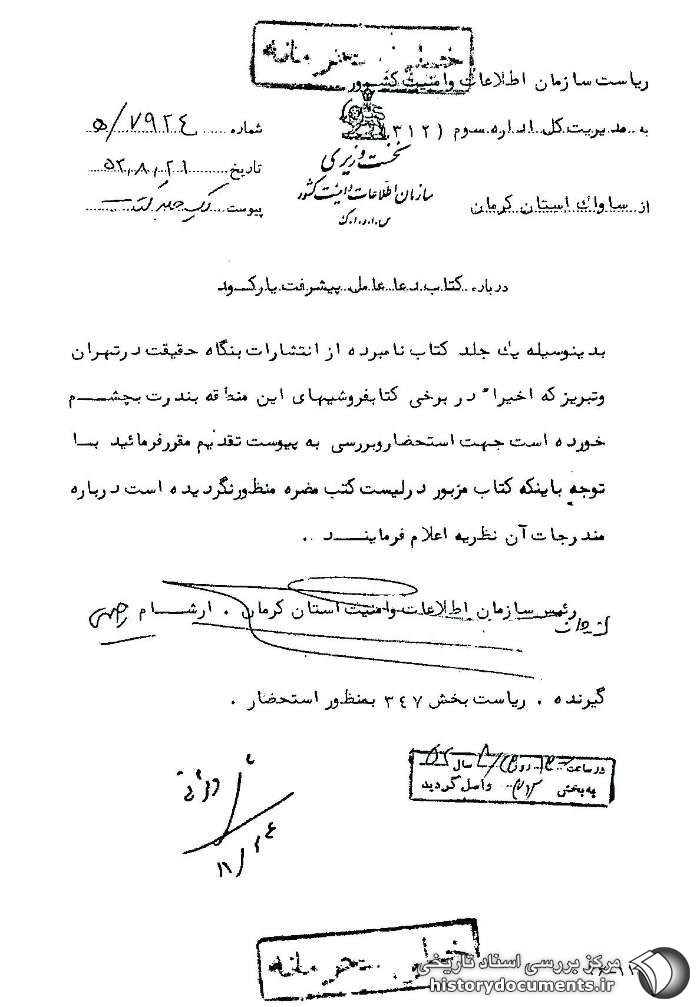 خیلی محرمانه
ریاست سازمان اطلاعات و امنیت کشور
به مدیریت کل اداره سوم (۳۱۲)
شماره ۵/۷۹۲۴
نخست وزیری
تاریخ ۵۲,۸,۲۱
سازمان اطلاعات و امنیت کشور
س.ا.و.ا.ک
از ساواک استان کرمان
پیوست یک جلد کتاب
درباره کتاب دعا عامل پیشرفت یا رکود
بدینوسیله یک جلد کتاب نامبرده از انتشارات بنگاه حقیقت در تهران
و تبریز که اخیراً در برخی کتابفروشیهای این منطقه بندرت بچشم
خورده است جهت استحضار و بررسی به پیوست تقدیم مقرر فرمائید با
توجه باینکه کتاب مزبور در لیست کتب مضره منظور نگردیده است درباره
مندرجات آن نظریه اعلام فرمایند ..
رئیس سازمان اطلاعات و امنیت استان کرمان . ارشام
گیرنده . ریاست بخش ۳۴۷ بمنظور استحضار .
در ساعت روز سال ۵۲
به بخش ۳۱۲ واصل گردید
خیلی محرمانه
مرکز بررسی اسناد تاریخی
historydocuments.ir